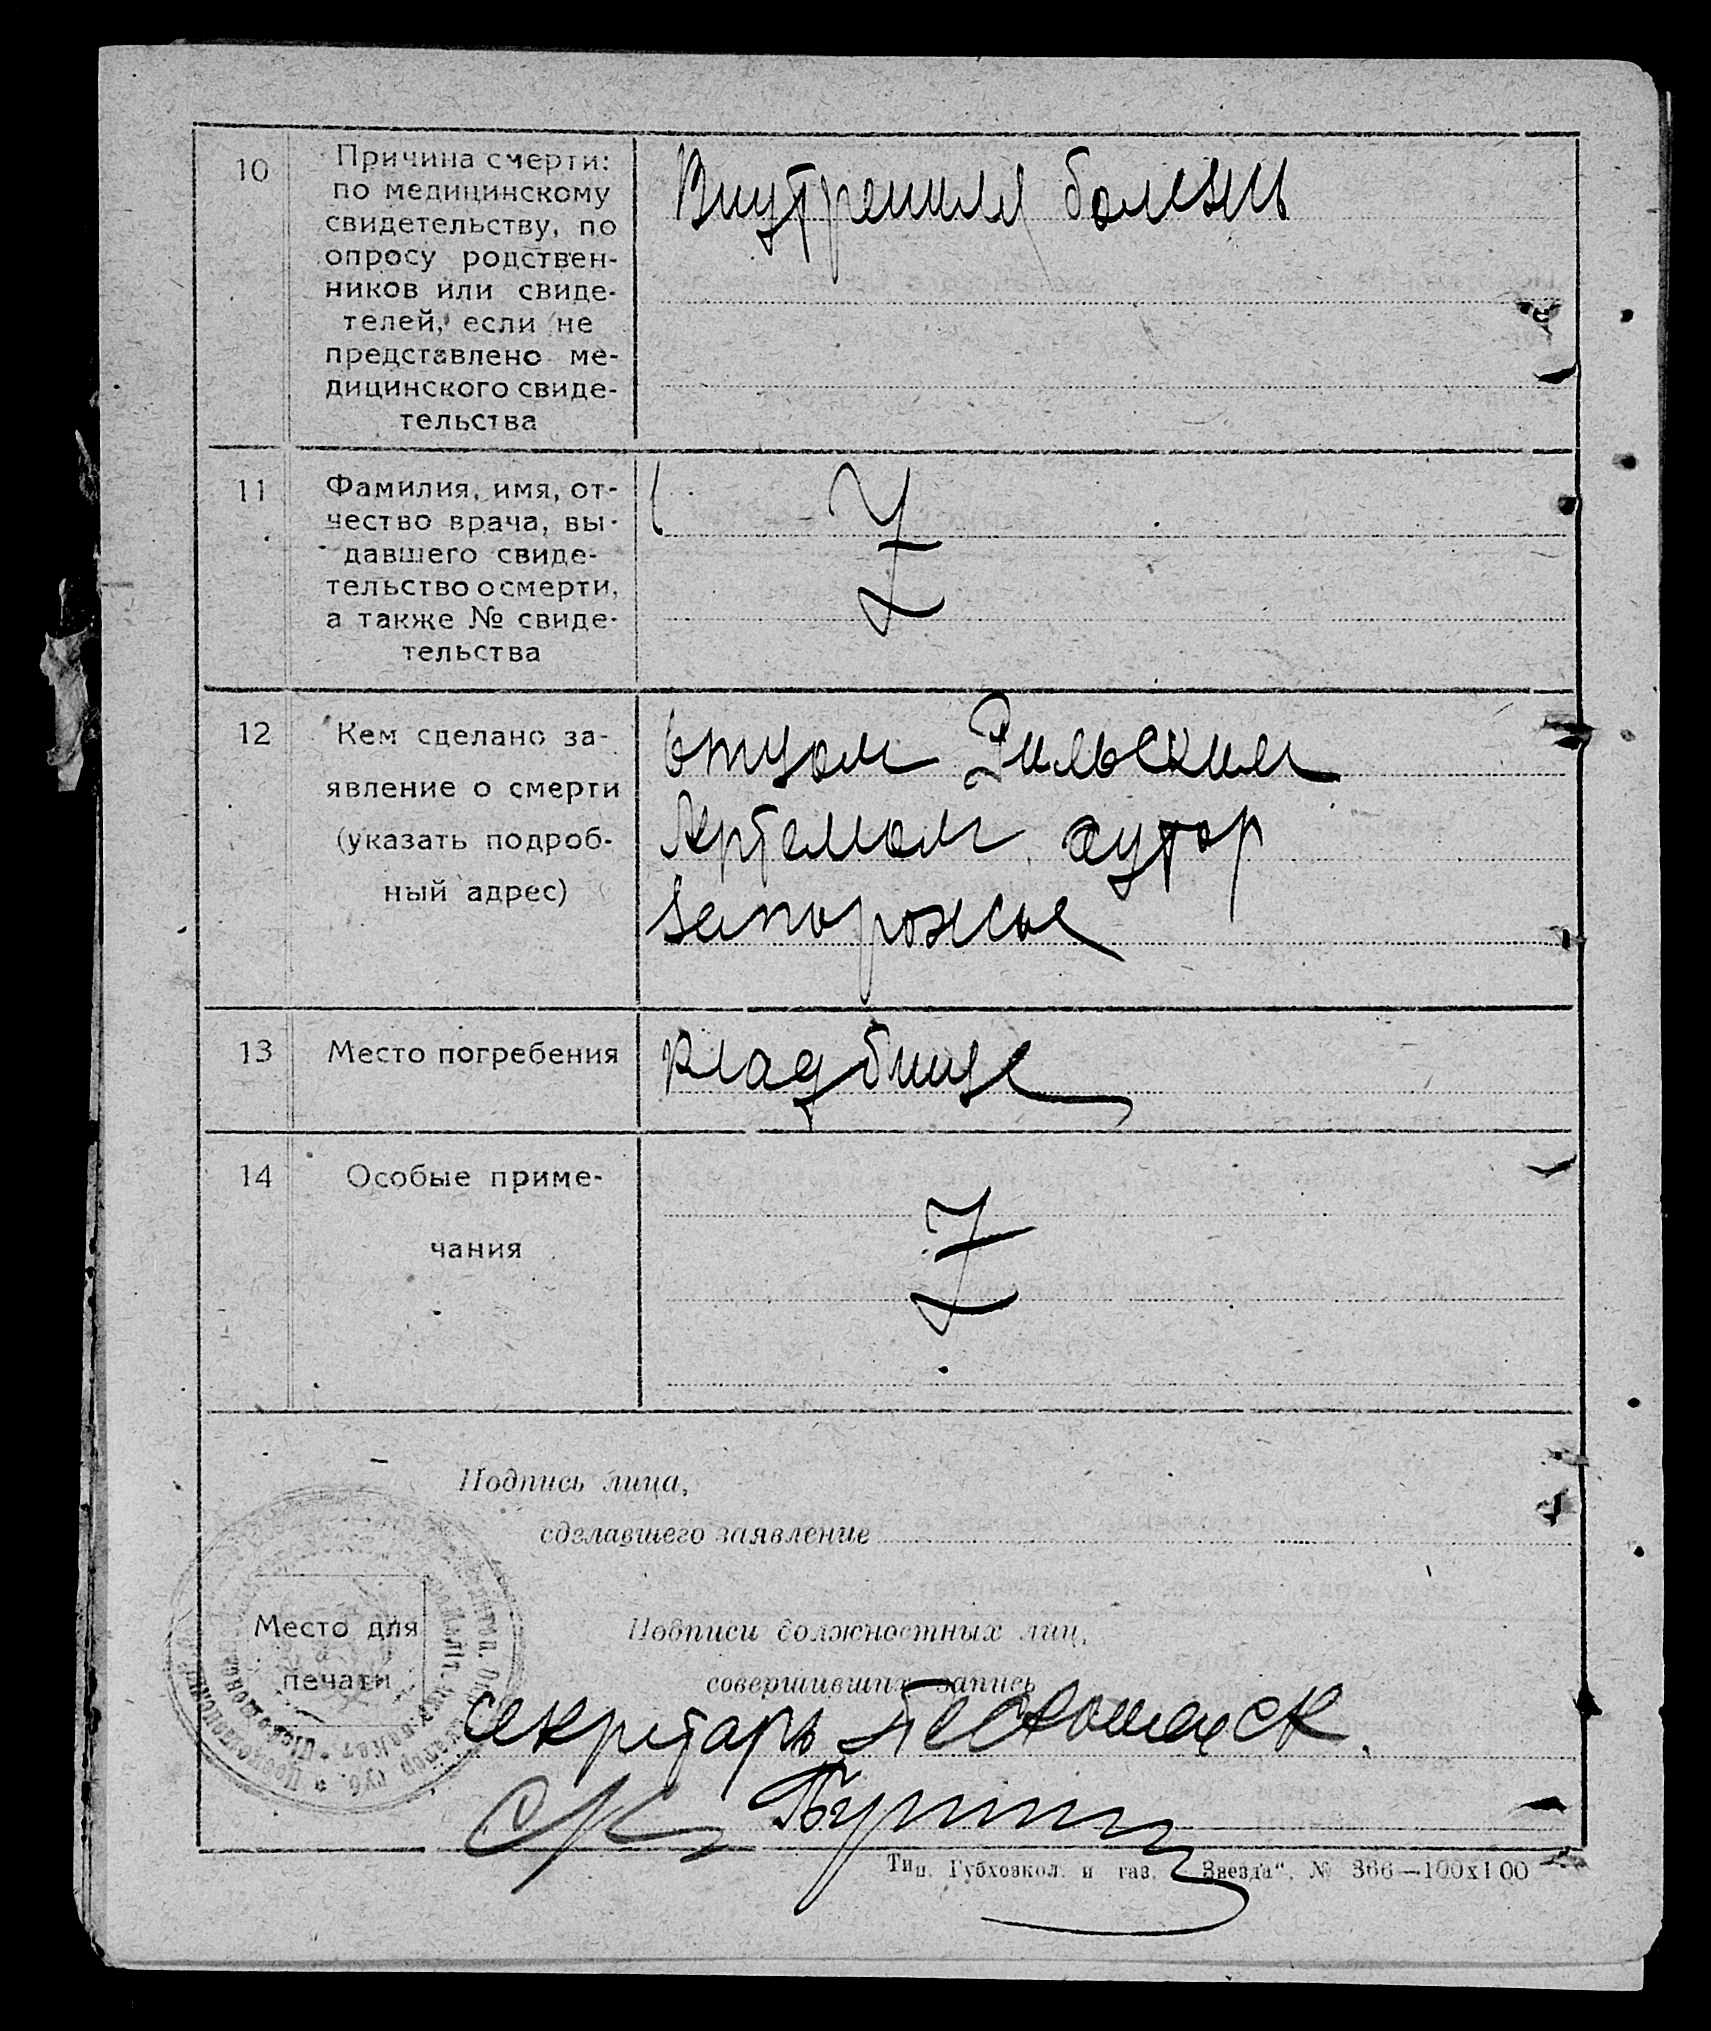 10
Причина смерти:
по медицинскому
свидетельству, по
опросу родствен-
ников или свиде-
телей, если не
представлено ме-
дицинского свиде-
тельства
Внутренняя болезнь
11
Фамилия, имя, от-
чество врача, вы-
давшего свиде-
тельство о смерти,
а также № свиде-
тельства
Z
12
Кем сделано за-
явление о смерти
(указать подроб-
ный адрес)
отцом Рильским
Артемом, хутор
Запорожье
13
Место погребения
кладбище
14
Особые приме-
чания
Z
Подпись лица,
сделавшего заявление
Место для
печати
Подписи должностных лиц,
совершивших запись
секретарь
Тип. Губхозкол. и газ. „Звезда“. № 366—100х100